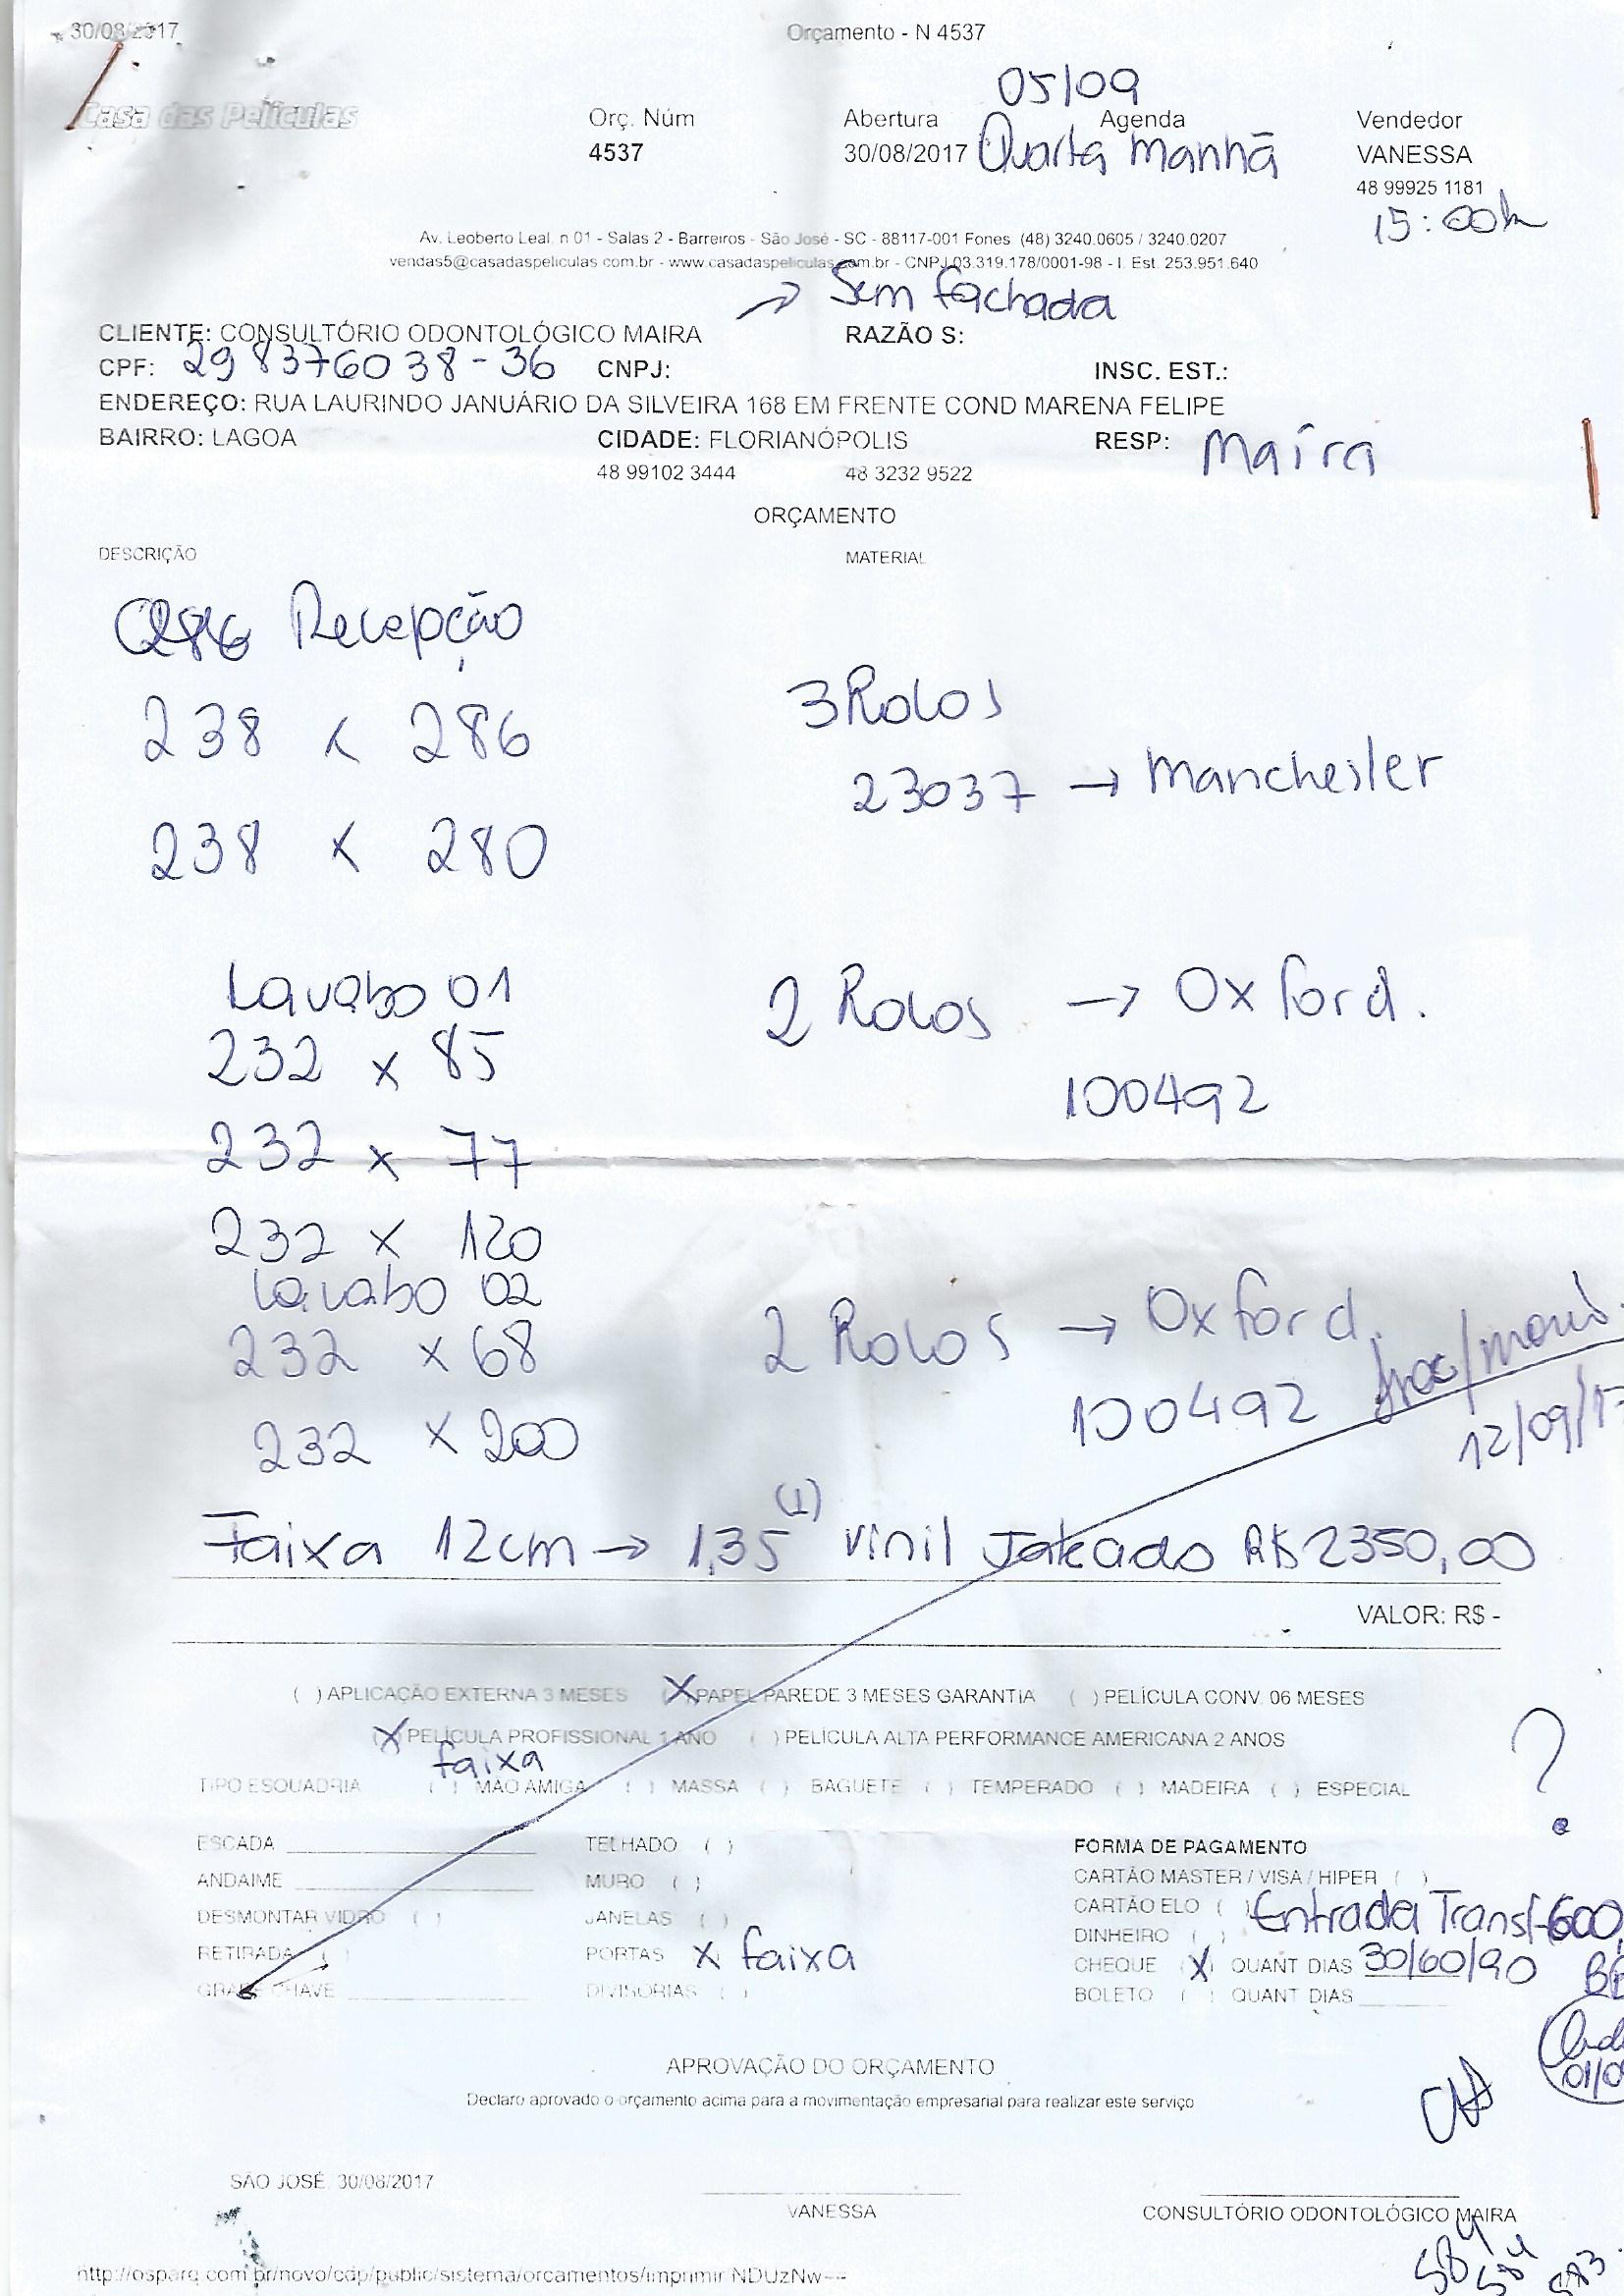 30/08/2017 Orçamento - N 4537
05/09
Casa das Películas Orç. Núm Abertura Agenda Vendedor
4537 30/08/2017 Quarta Manhã VANESSA
48 99925 1181
15:00h
Av. Leoberto Leal, n 01 - Salas 2 - Barreiros - São José - SC - 88117-001 Fones (48) 3240.0605 / 3240.0207
vendas5@casadaspeliculas.com.br - www.casadaspeliculas.com.br - CNPJ 03.319.178/0001-98 - I. Est. 253.951.640
→ Sem fachada
CLIENTE: CONSULTÓRIO ODONTOLÓGICO MAIRA RAZÃO S:
CPF: 298376038-36 CNPJ: INSC. EST.:
ENDEREÇO: RUA LAURINDO JANUÁRIO DA SILVEIRA 168 EM FRENTE COND MARENA FELIPE
BAIRRO: LAGOA CIDADE: FLORIANÓPOLIS RESP: Maíra
48 99102 3444 48 3232 9522
ORÇAMENTO
DESCRIÇÃO MATERIAL
Recepção
3 Rolos
238 x 286
23037 → Manchester
238 x 280
Lavabo 01 2 Rolos → Oxford.
232 x 85
100492
232 x 77
232 x 120
Lavabo 02
232 x 68 2 Rolos → Oxford.
100492
232 x 200 12/09/17
Faixa 12cm → 1,35 (1) vinil Jateado R$ 2350,00
VALOR: R$ -
( ) APLICAÇÃO EXTERNA 3 MESES (X) PAPEL PAREDE 3 MESES GARANTIA ( ) PELÍCULA CONV. 06 MESES
(X) PELÍCULA PROFISSIONAL 1 ANO ( ) PELÍCULA ALTA PERFORMANCE AMERICANA 2 ANOS
faixa
TIPO ESQUADRIA ( ) MÃO AMIGA ( ) MASSA ( ) BAGUETE ( ) TEMPERADO ( ) MADEIRA ( ) ESPECIAL
?
ESCADA TELHADO ( ) FORMA DE PAGAMENTO
ANDAIME MURO ( ) CARTÃO MASTER / VISA / HIPER ( )
DESMONTAR VIDRO ( ) JANELAS ( ) CARTÃO ELO ( ) Entrada Transf-600,
RETIRADA ( ) PORTAS X faixa DINHEIRO ( )
CHEQUE (X) QUANT DIAS 30/60/90
GRADE CHAVE DIVISÓRIAS ( ) BOLETO ( ) QUANT DIAS
APROVAÇÃO DO ORÇAMENTO
Declaro aprovado o orçamento acima para a movimentação empresarial para realizar este serviço
SÃO JOSÉ 30/08/2017
VANESSA CONSULTÓRIO ODONTOLÓGICO MAIRA
584 584
http://osparq.com.br/novo/cdp/public/sistema/orcamentos/imprimir/NDUzNw--